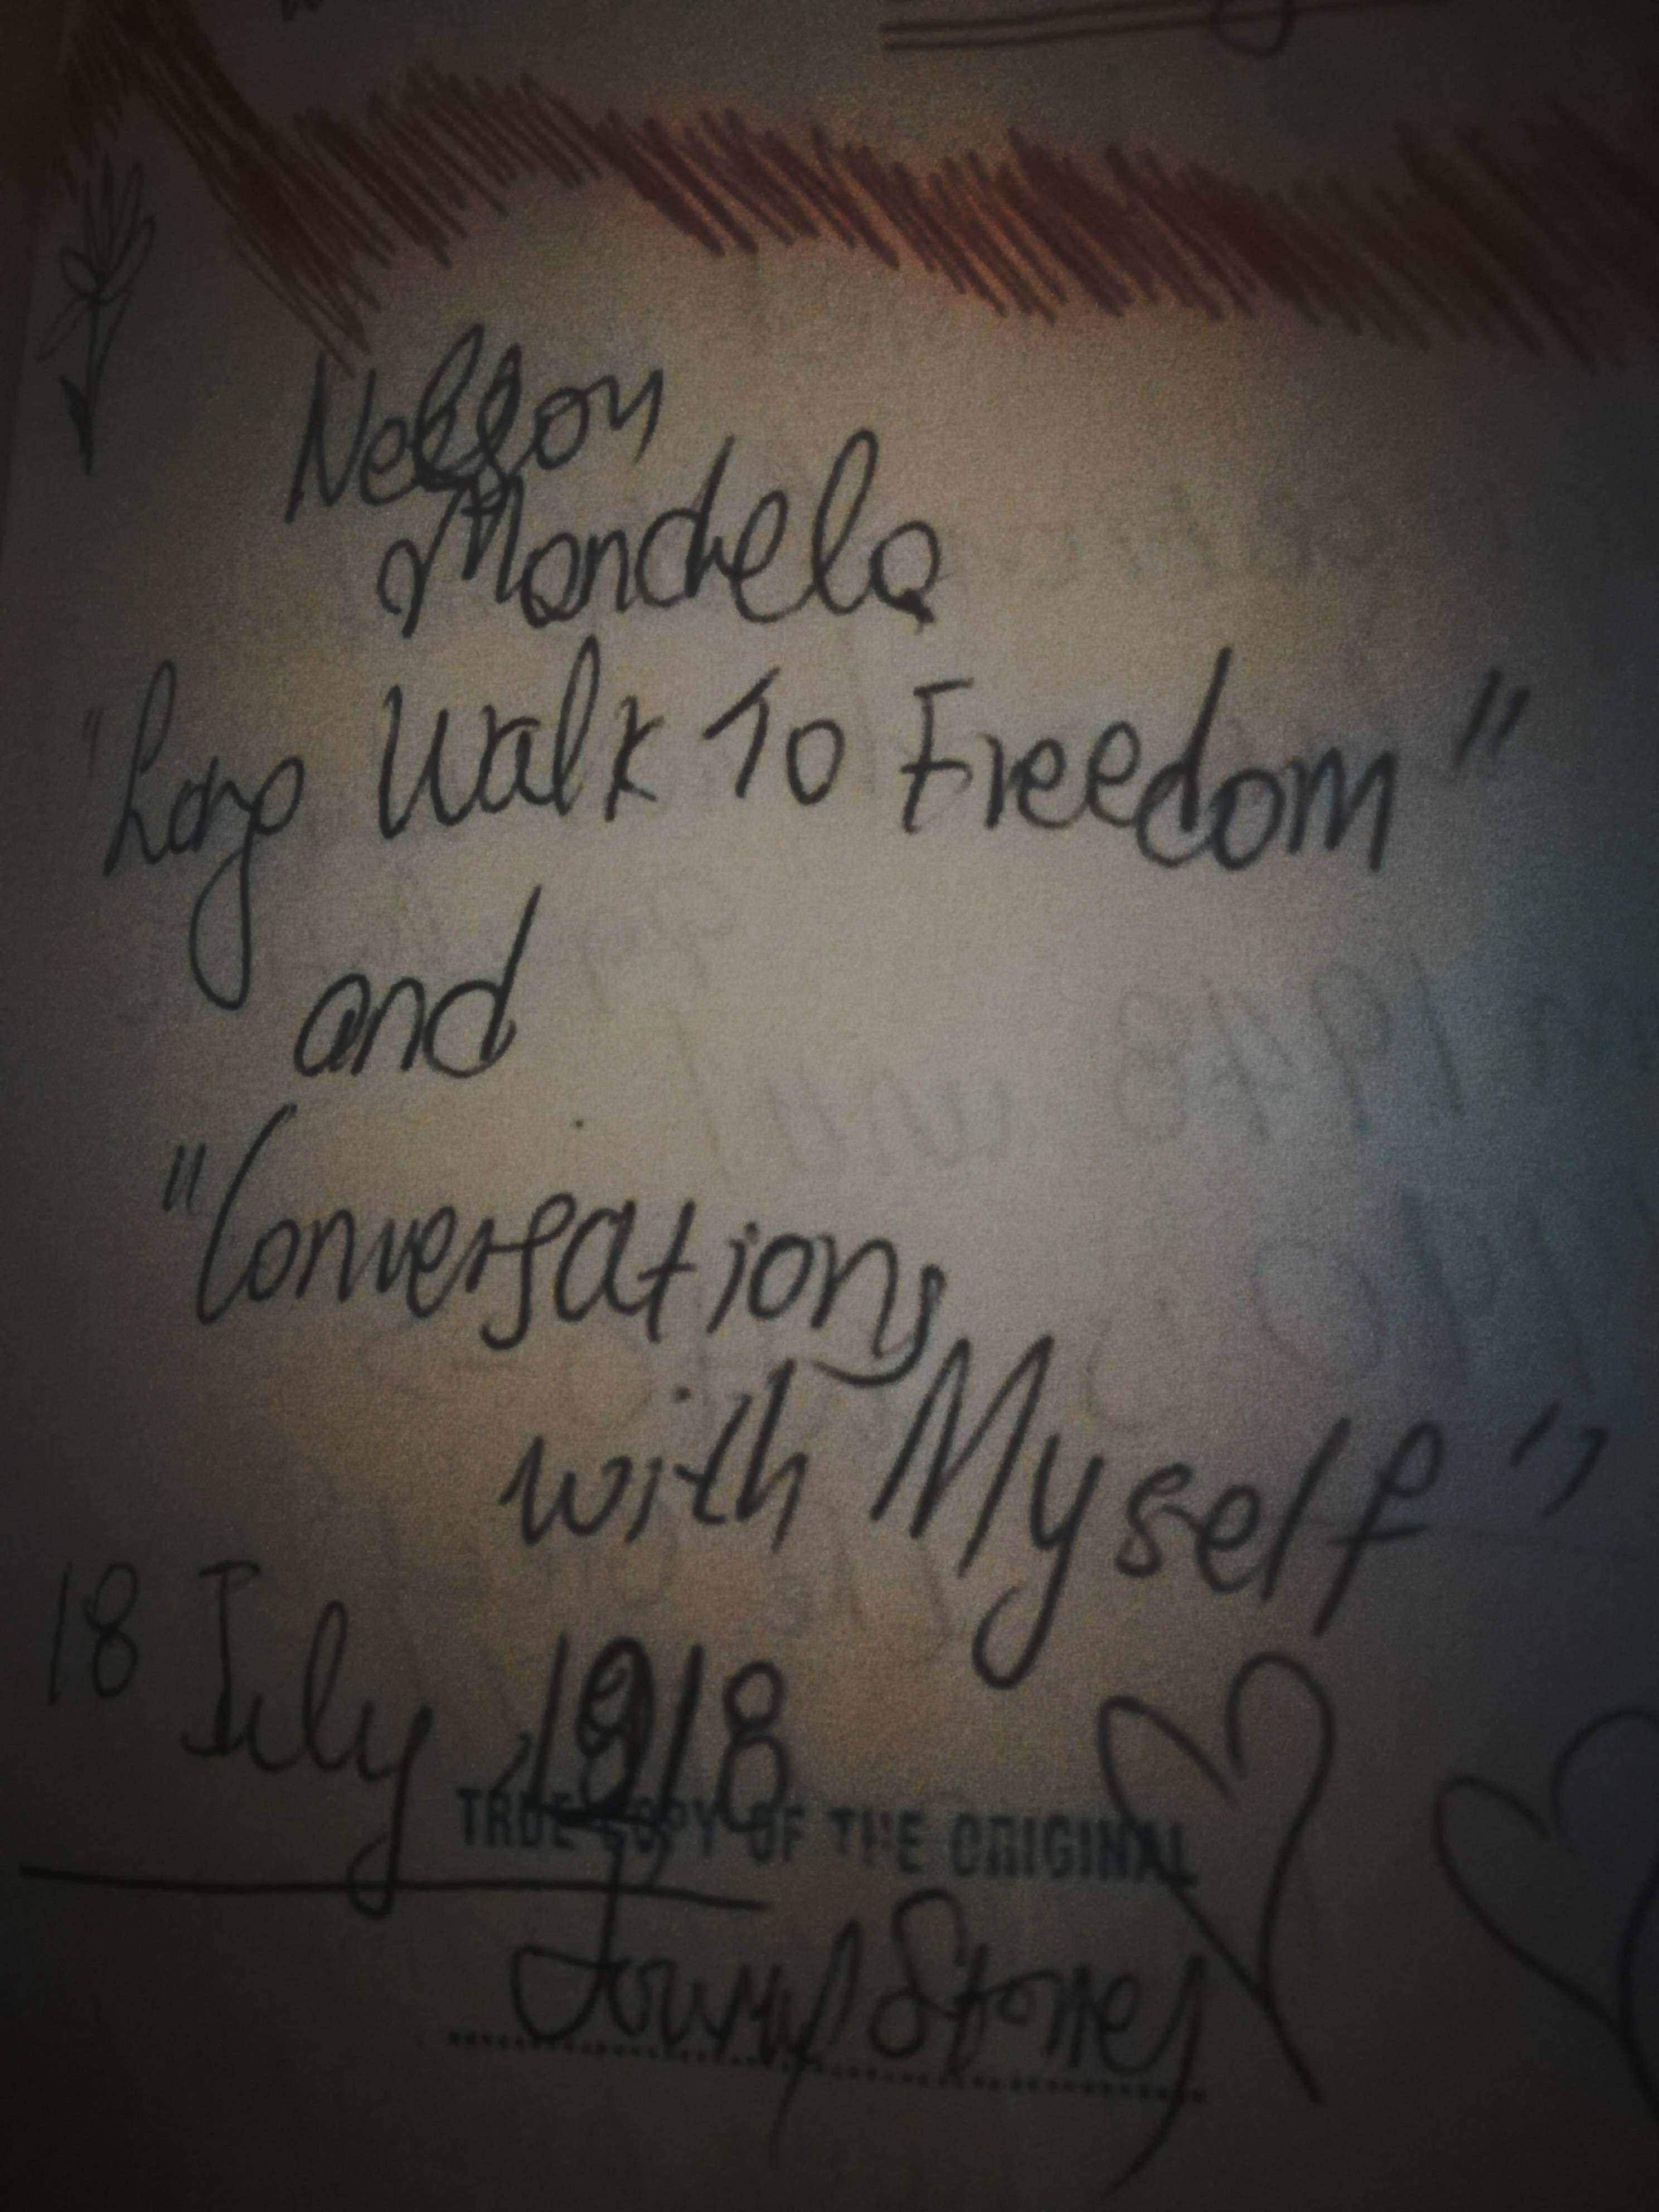 Nelson
Mandela
"Long Walk To Freedom"
and
"Conversations
with Myself"
18 July 1918
TRUE COPY OF THE ORIGINAL